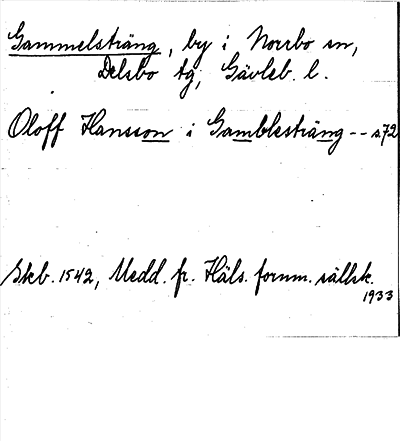 Gammelsträng, by i Norrbo sn,
Delsbo tg, Gävleb. l.
Oloff Hansson i Gamblesträng -- s. 72
Skb. 1542, Medd. fr. Häls. fornm. sällsk.
1933